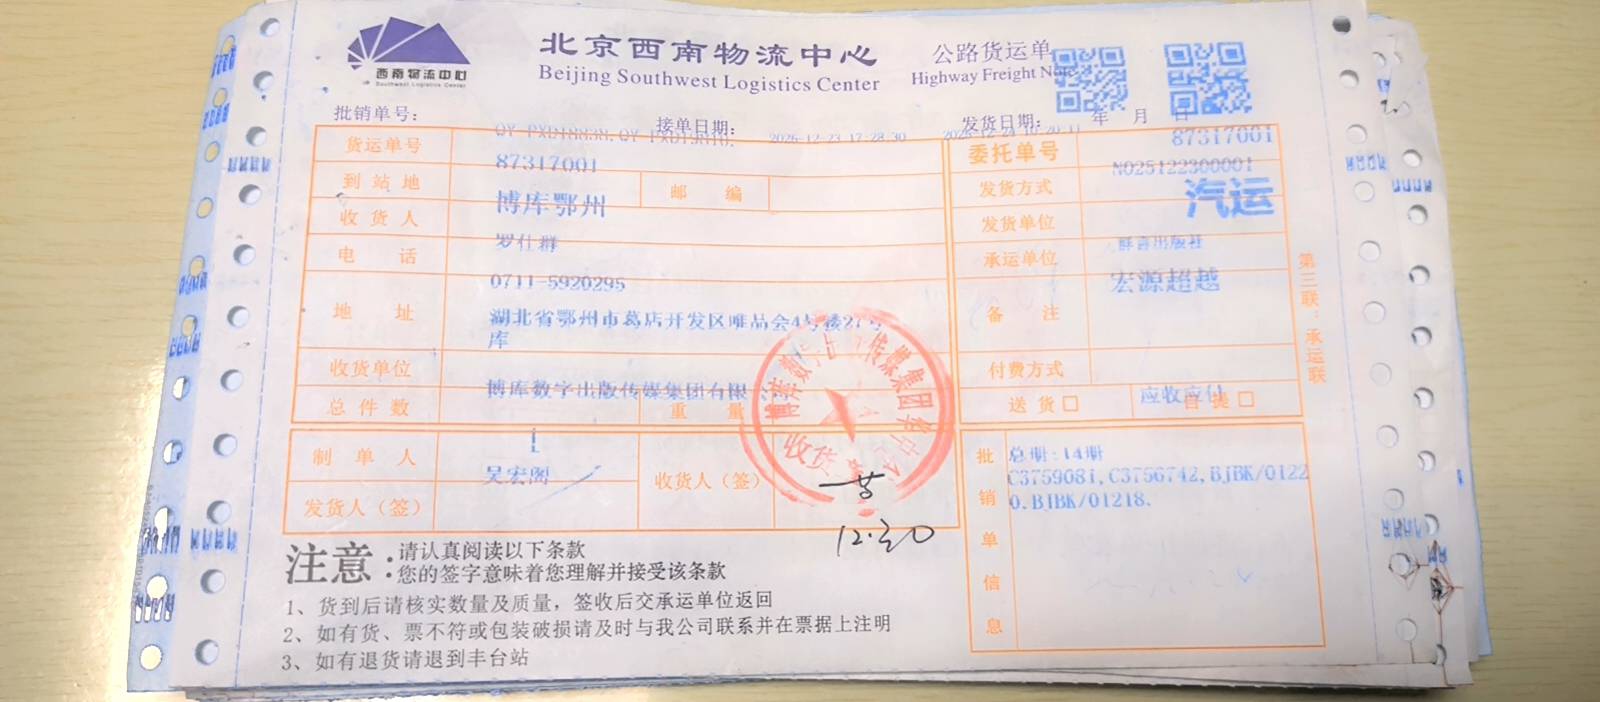 西南物流中心
Southwest Logistics Center
北京西南物流中心
Beijing Southwest Logistics Center
公路货运单
Highway Freight Note
批销单号：
接单日期：
2025-12-23 17:28:30
发货日期： 年 月 日
货运单号 87317001
87317001
委托单号 N025122300001
到站地 博库鄂州 邮编
发货方式 汽运
收货人 罗仕群
发货单位 群言出版社
电话 0711-5920295
承运单位 宏源超越
地址 湖北省鄂州市葛店开发区唯品会4号楼27号
库
备注
收货单位 博库数字出版传媒集团有限
付费方式 应收应付
总件数 1 重量
送货 自提
制单人 吴宏阁
收货人（签）
发货人（签）
批销单信息
总册:14册
C3759081,C3756742,BJBK/0122
0,BJBK/01218.
第三联：承运联
收货
12.30
注意：
请认真阅读以下条款
您的签字意味着您理解并接受该条款
1、货到后请核实数量及质量，签收后交承运单位返回
2、如有货、票不符或包装破损请及时与我公司联系并在票据上注明
3、如有退货请退到丰台站